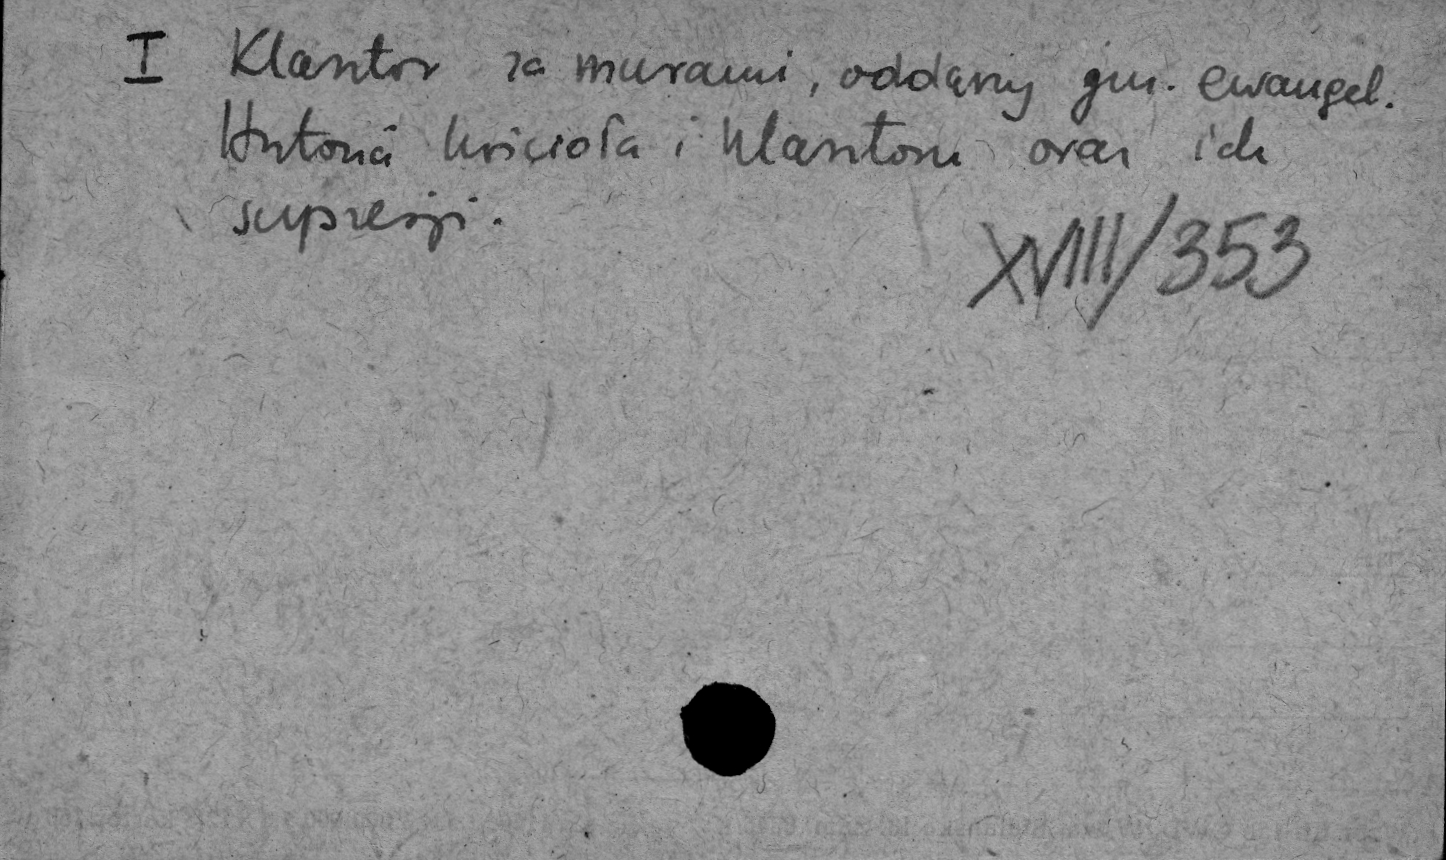 I Klasztor za murami, oddany gm. ewangel.
Historia kościoła i klasztoru oraz ich
supresji.
XVIII/353